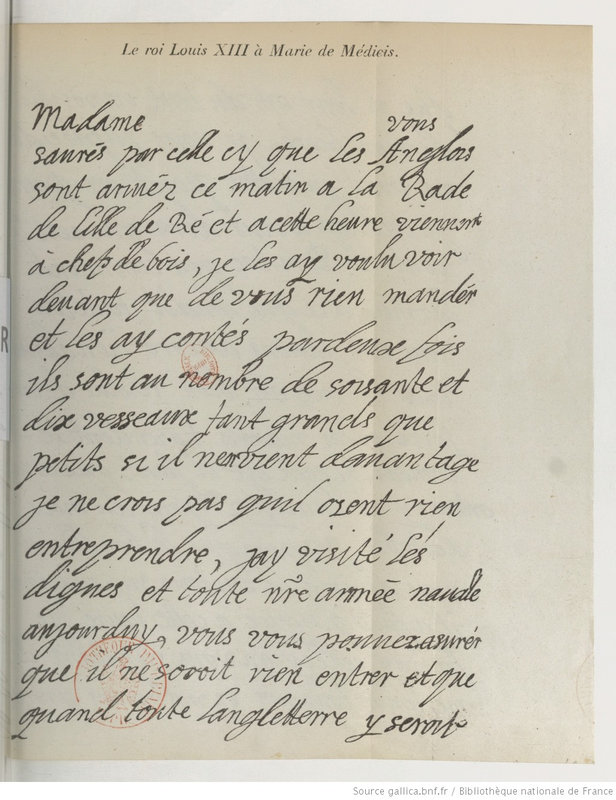 Le roi Louis XIII à Marie de Médicis.
Madame vous
saurés par celle cy que les Anglois
sont arivéz ce matin a la Rade
de lille de Ré et a cette heure viennent
à chef de bois, je les ay voulu voir
devant que de vous rien mandér
et les ay contés par deux fois
ils sont au nombre de soisante et
dix vesseaux tant grands que
petits si il nen vient davantage
je ne crois pas quil osent rien
entreprendre, jay visité lés
digues et toute nre armée navalle
aujourduy, vous vous pouvez asurér
que il ne soroit rien entrer et que
quand toute langleterre y seroit
Source gallica.bnf.fr / Bibliothèque nationale de France